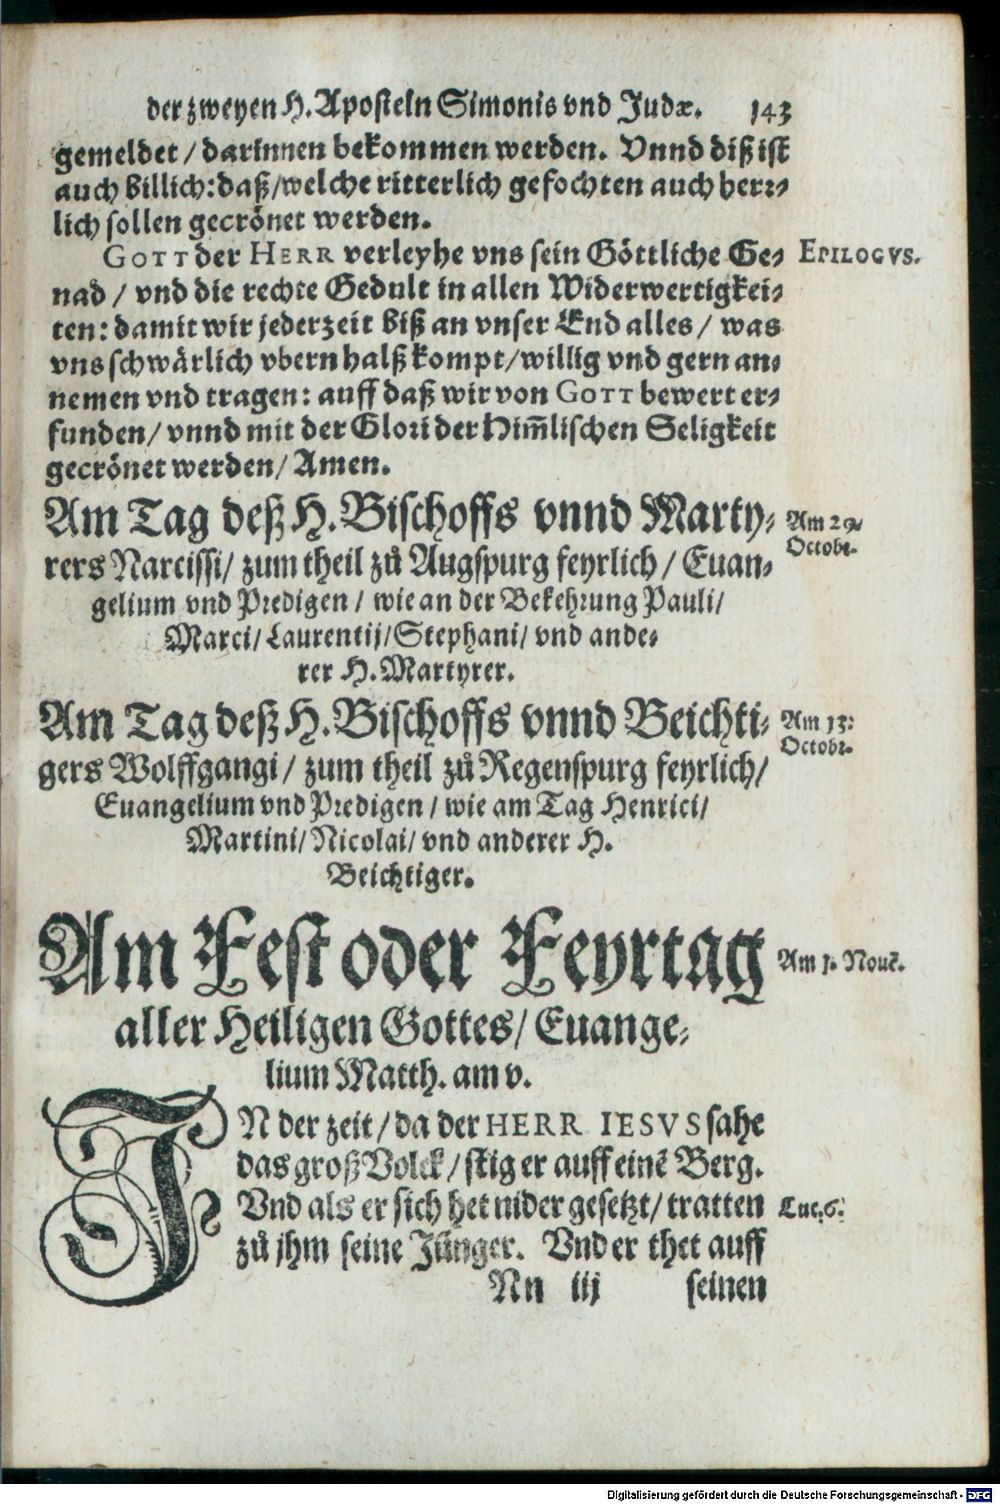 der zweyen H. Aposteln Simonis vnd Judæ. 143
gemeldet / darinnen bekommen werden. Vnnd diß ist
auch billich: daß / welche ritterlich gefochten auch herr⸗
lich sollen gecrönet werden.
GOTT der HERR verleyhe vns sein Göttliche Ge⸗ EPILOGVS.
nad / vnd die rechte Gedult in allen Widerwertigkei⸗
ten: damit wir jederzeit biß an vnser End alles / was
vns schwärlich vbern halß kompt / willig vnd gern an⸗
nemen vnd tragen: auff daß wir von GOTT bewert er⸗
funden / vnnd mit der Glori der Him̄lischen Seligkeit
gecrönet werden / Amen.
Am Tag deß H. Bischoffs vnnd Marty⸗ Am 29.
rers Narcissi / zum theil zů Augspurg feyrlich / Euan⸗ Octobr.
gelium vnd Predigen / wie an der Bekehrung Pauli /
Marci / Laurentij / Stephani / vnd ande⸗
rer H. Martyrer.
Am Tag deß H. Bischoffs vnnd Beichti⸗ Am 13:
gers Wolffgangi / zum theil zů Regenspurg feyrlich / Octobr.
Euangelium vnd Predigen / wie am Tag Henrici /
Martini / Nicolai / vnd anderer H.
Beichtiger.
Am Fest oder Feyrtag Am 1. Nouē.
aller Heiligen Gottes / Euange⸗
lium Matth. am v.
JN der zeit / da der HERR IESVS sahe
das groß Volck / stig er auff einē Berg.
Vnd als er sich het nider gesetzt / tratten Luc. 6.
zů jhm seine Jünger. Vnd er thet auff
Nn iij seinen
Digitalisierung gefördert durch die Deutsche Forschungsgemeinschaft - DFG